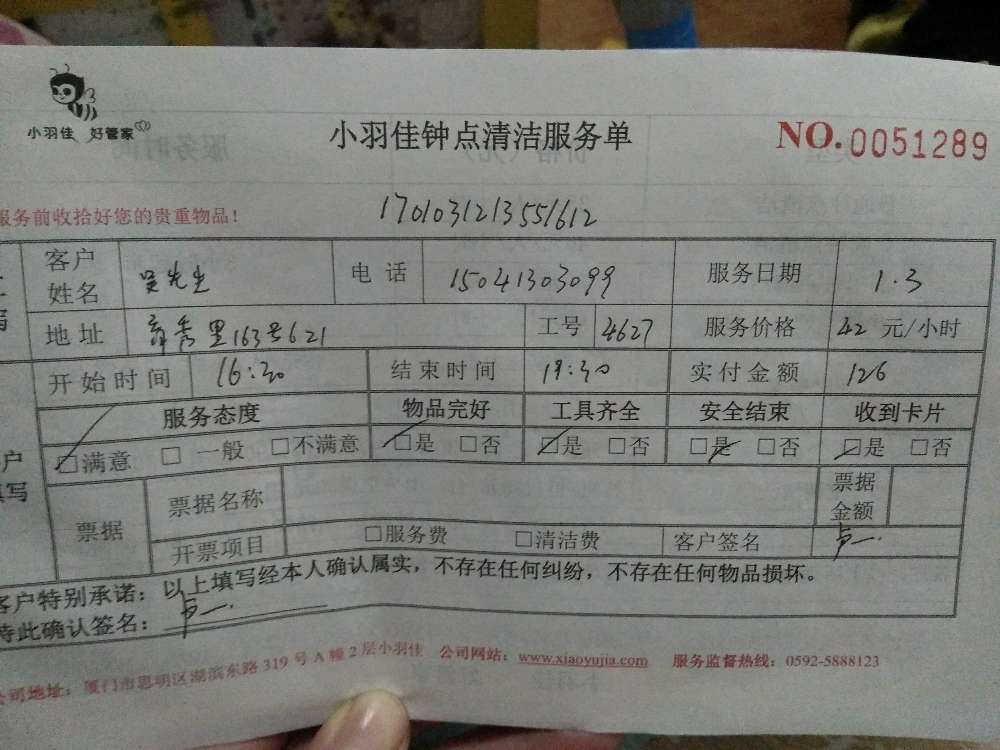 小羽佳 好管家
小羽佳钟点清洁服务单
NO.0051289
服务前收拾好您的贵重物品!
1701031213551612
客户姓名 吴先生 电话 15041303099 服务日期 1.3
地址 163号621 工号 4627 服务价格 42 元/小时
开始时间 16:30 结束时间 19:30 实付金额 126
服务态度 物品完好 工具齐全 安全结束 收到卡片
□满意 □一般 □不满意 □是 □否 □是 □否 □是 □否 □是 □否
票据 票据名称 票据金额
开票项目 □服务费 □清洁费 客户签名
客户特别承诺:以上填写经本人确认属实,不存在任何纠纷,不存在任何物品损坏。
特此确认签名:
公司地址:厦门市思明区湖滨东路319号A幢2层小羽佳 公司网站:www.xiaoyujia.com 服务监督热线:0592-5888123